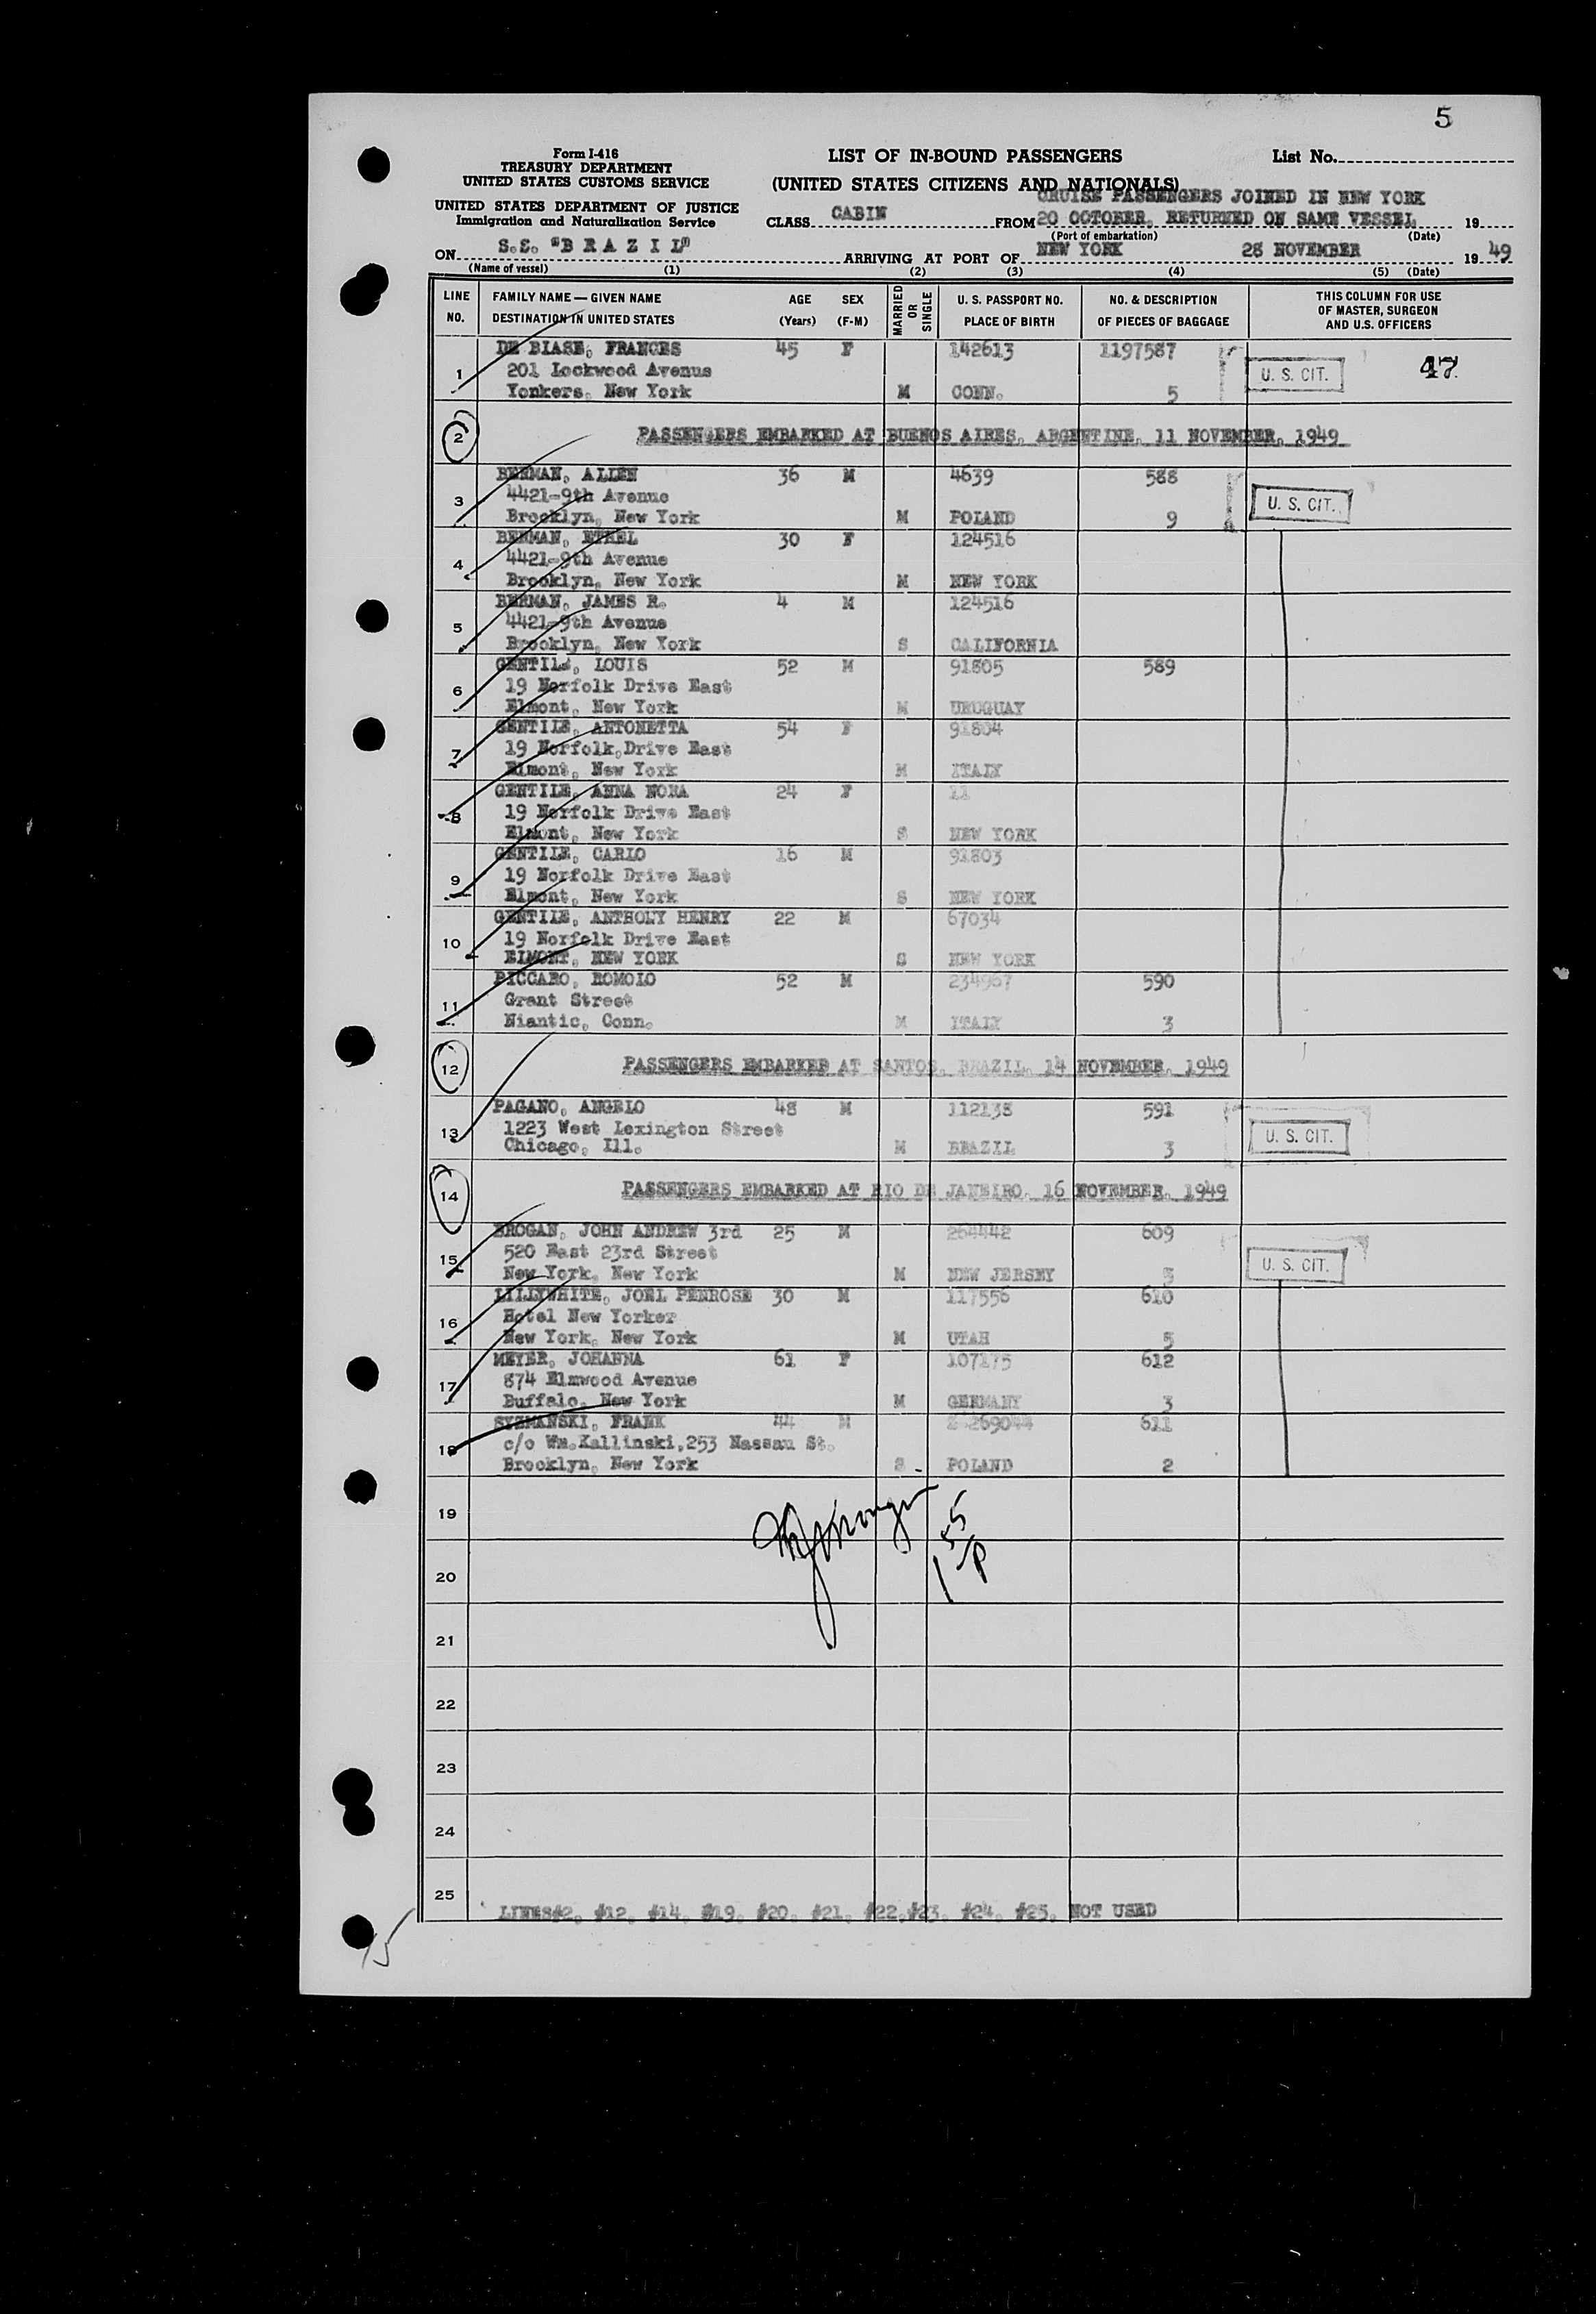 5
Form I-416
TREASURY DEPARTMENT
UNITED STATES CUSTOMS SERVICE
UNITED STATES DEPARTMENT OF JUSTICE
Immigration and Naturalization Service
LIST OF IN-BOUND PASSENGERS
(UNITED STATES CITIZENS AND NATIONALS)
List No.
CRUISE PASSENGERS JOINED IN NEW YORK
CLASS CABIN FROM 20 OCTOBER, RETURNED ON SAME VESSEL 19
(Port of embarkation) (Date)
ON S.S. "B R A Z I L" ARRIVING AT PORT OF NEW YORK 28 NOVEMBER 1949
(Name of vessel) (1) (2) (3) (4) (5) (Date)
LINE NO.
FAMILY NAME — GIVEN NAME
DESTINATION IN UNITED STATES
AGE (Years)
SEX (F-M)
MARRIED OR SINGLE
U. S. PASSPORT NO.
PLACE OF BIRTH
NO. & DESCRIPTION
OF PIECES OF BAGGAGE
THIS COLUMN FOR USE
OF MASTER, SURGEON
AND U.S. OFFICERS
DE BIASE, FRANCES 45 F 142613 1197587
1 201 Lockwood Avenue U. S. CIT. 47
Yonkers, New York M CONN. 5
2 PASSENGERS EMBARKED AT BUENOS AIRES, ARGENTINE, 11 NOVEMBER, 1949
BERMAN, ALLEN 36 M 4639 588
3 4421-9th Avenue U. S. CIT.
Brooklyn, New York M POLAND 9
BERMAN, ETHEL 30 F 124516
4 4421-9th Avenue
Brooklyn, New York M NEW YORK
BERMAN, JAMES R. 4 M 124516
5 4421-9th Avenue
Brooklyn, New York S CALIFORNIA
GENTILE, LOUIS 52 M 91805 589
6 19 Norfolk Drive East
Elmont, New York M URUGUAY
GENTILE, ANTONETTA 54 F 91804
7 19 Norfolk Drive East
Elmont, New York M ITALY
GENTILE, ANNA NORA 24 F 11
8 19 Norfolk Drive East
Elmont, New York S NEW YORK
GENTILE, CARLO 16 M 91803
9 19 Norfolk Drive East
Elmont, New York S NEW YORK
GENTILE, ANTHONY HENRY 22 M 67034
10 19 Norfolk Drive East
ELMONT, NEW YORK S NEW YORK
PICCARO, ROMOLO 52 M 234967 590
11 Grant Street
Niantic, Conn. M ITALY 3
12 PASSENGERS EMBARKED AT SANTOS, BRAZIL, 14 NOVEMBER, 1949
PAGANO, ANGELO 48 M 112138 591
13 1223 West Lexington Street U. S. CIT.
Chicago, Ill. M BRAZIL 3
14 PASSENGERS EMBARKED AT RIO DE JANEIRO, 16 NOVEMBER, 1949
BROGAN, JOHN ANDREW 3rd 25 M 264442 609
15 520 East 23rd Street U. S. CIT.
New York, New York M NEW JERSEY 5
LILLYWHITE, JOEL PENROSE 30 M 117556 610
16 Hotel New Yorker
New York, New York M UTAH 5
MEYER, JOHANNA 61 F 107175 612
17 874 Elmwood Avenue
Buffalo, New York M GERMANY 3
SYZMANSKI, FRANK 44 M 611
18 c/o Wm.Kallinski,253 Nassau St.
Brooklyn, New York S POLAND 2
19
155/P
20
21
22
23
24
25
LINES#2, #12, #14, #19, #20, #21, #22,#23, #24, #25, NOT USED
15